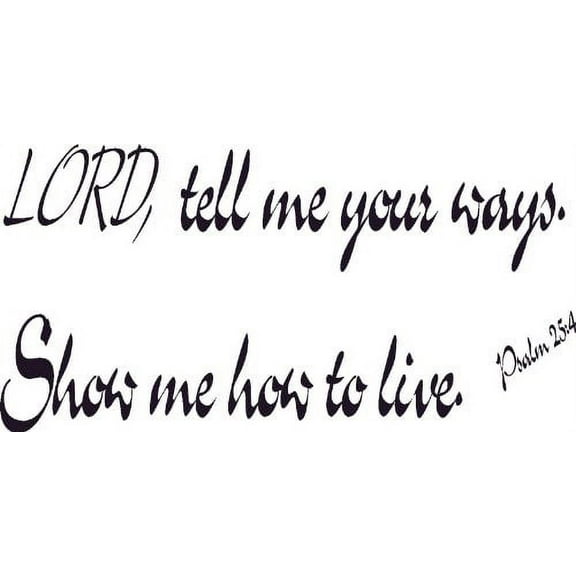 LORD, tell me your ways.
Show me how to live.
Psalm 25:4